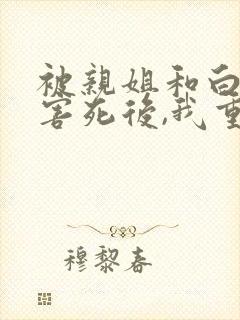 被親姐和白
害死後,我重
穆黎春